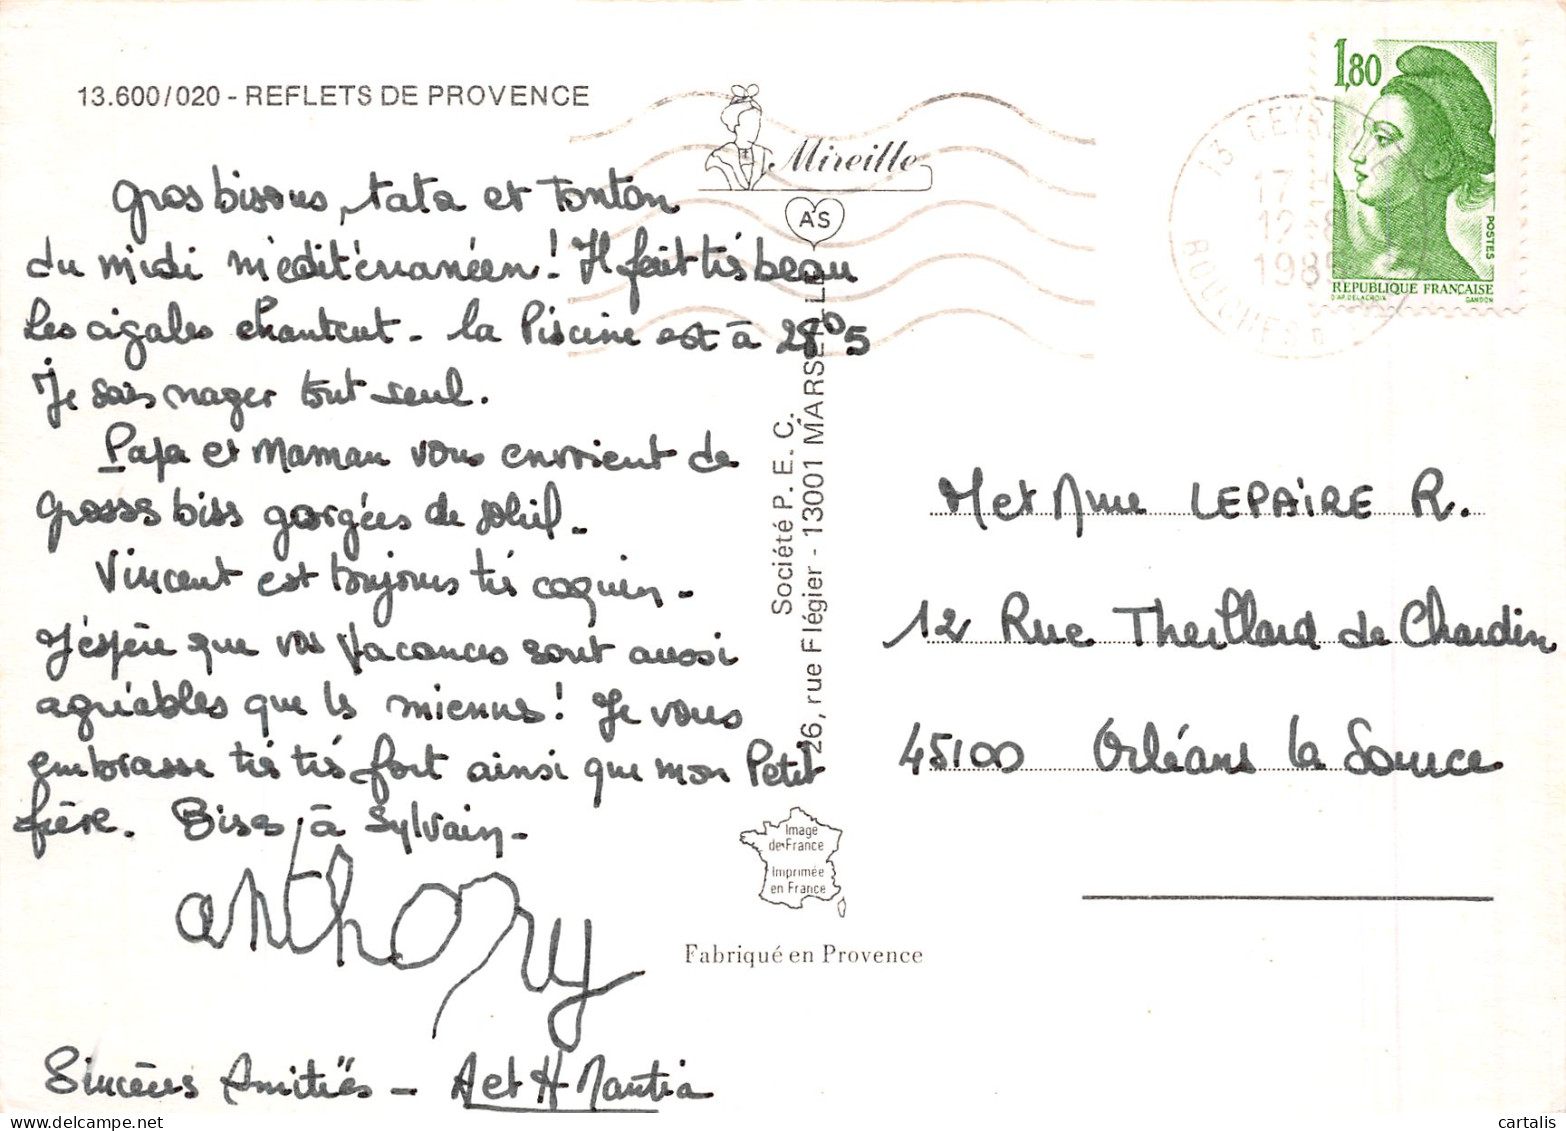 13.600/020 - REFLETS DE PROVENCE
Mireille
AS
Gros bisous, tata et Tonton
du midi méditérranéen! Il fait très beau
Les cigales chantent - la Piscine est à 28°5
Je sais nager tout seul.
Papa et Maman vous envoient de
grosses bises gorgées de soleil -
Vincent est toujours très coquin -
J'éspère que vos vacances sont aussi
agréables que les miennes! Je vous
embrasse très très fort ainsi que mon Petit
frère. Bises à Sylvain -
anthony
Sincères Amitiés - A et H
Société P. E. C.
26, rue Flégier - 13001 MARSEILLE
Image
de France
Imprimée
en France
Fabriqué en Provence
1,80
POSTES
REPUBLIQUE FRANÇAISE
D'AP. DELACROIX GANDON
13
17
12-8
BOUCHES
M et Mme LEPAIRE R.
12 Rue Theillard de Chardin
45100 Orléans la Source
cartalis